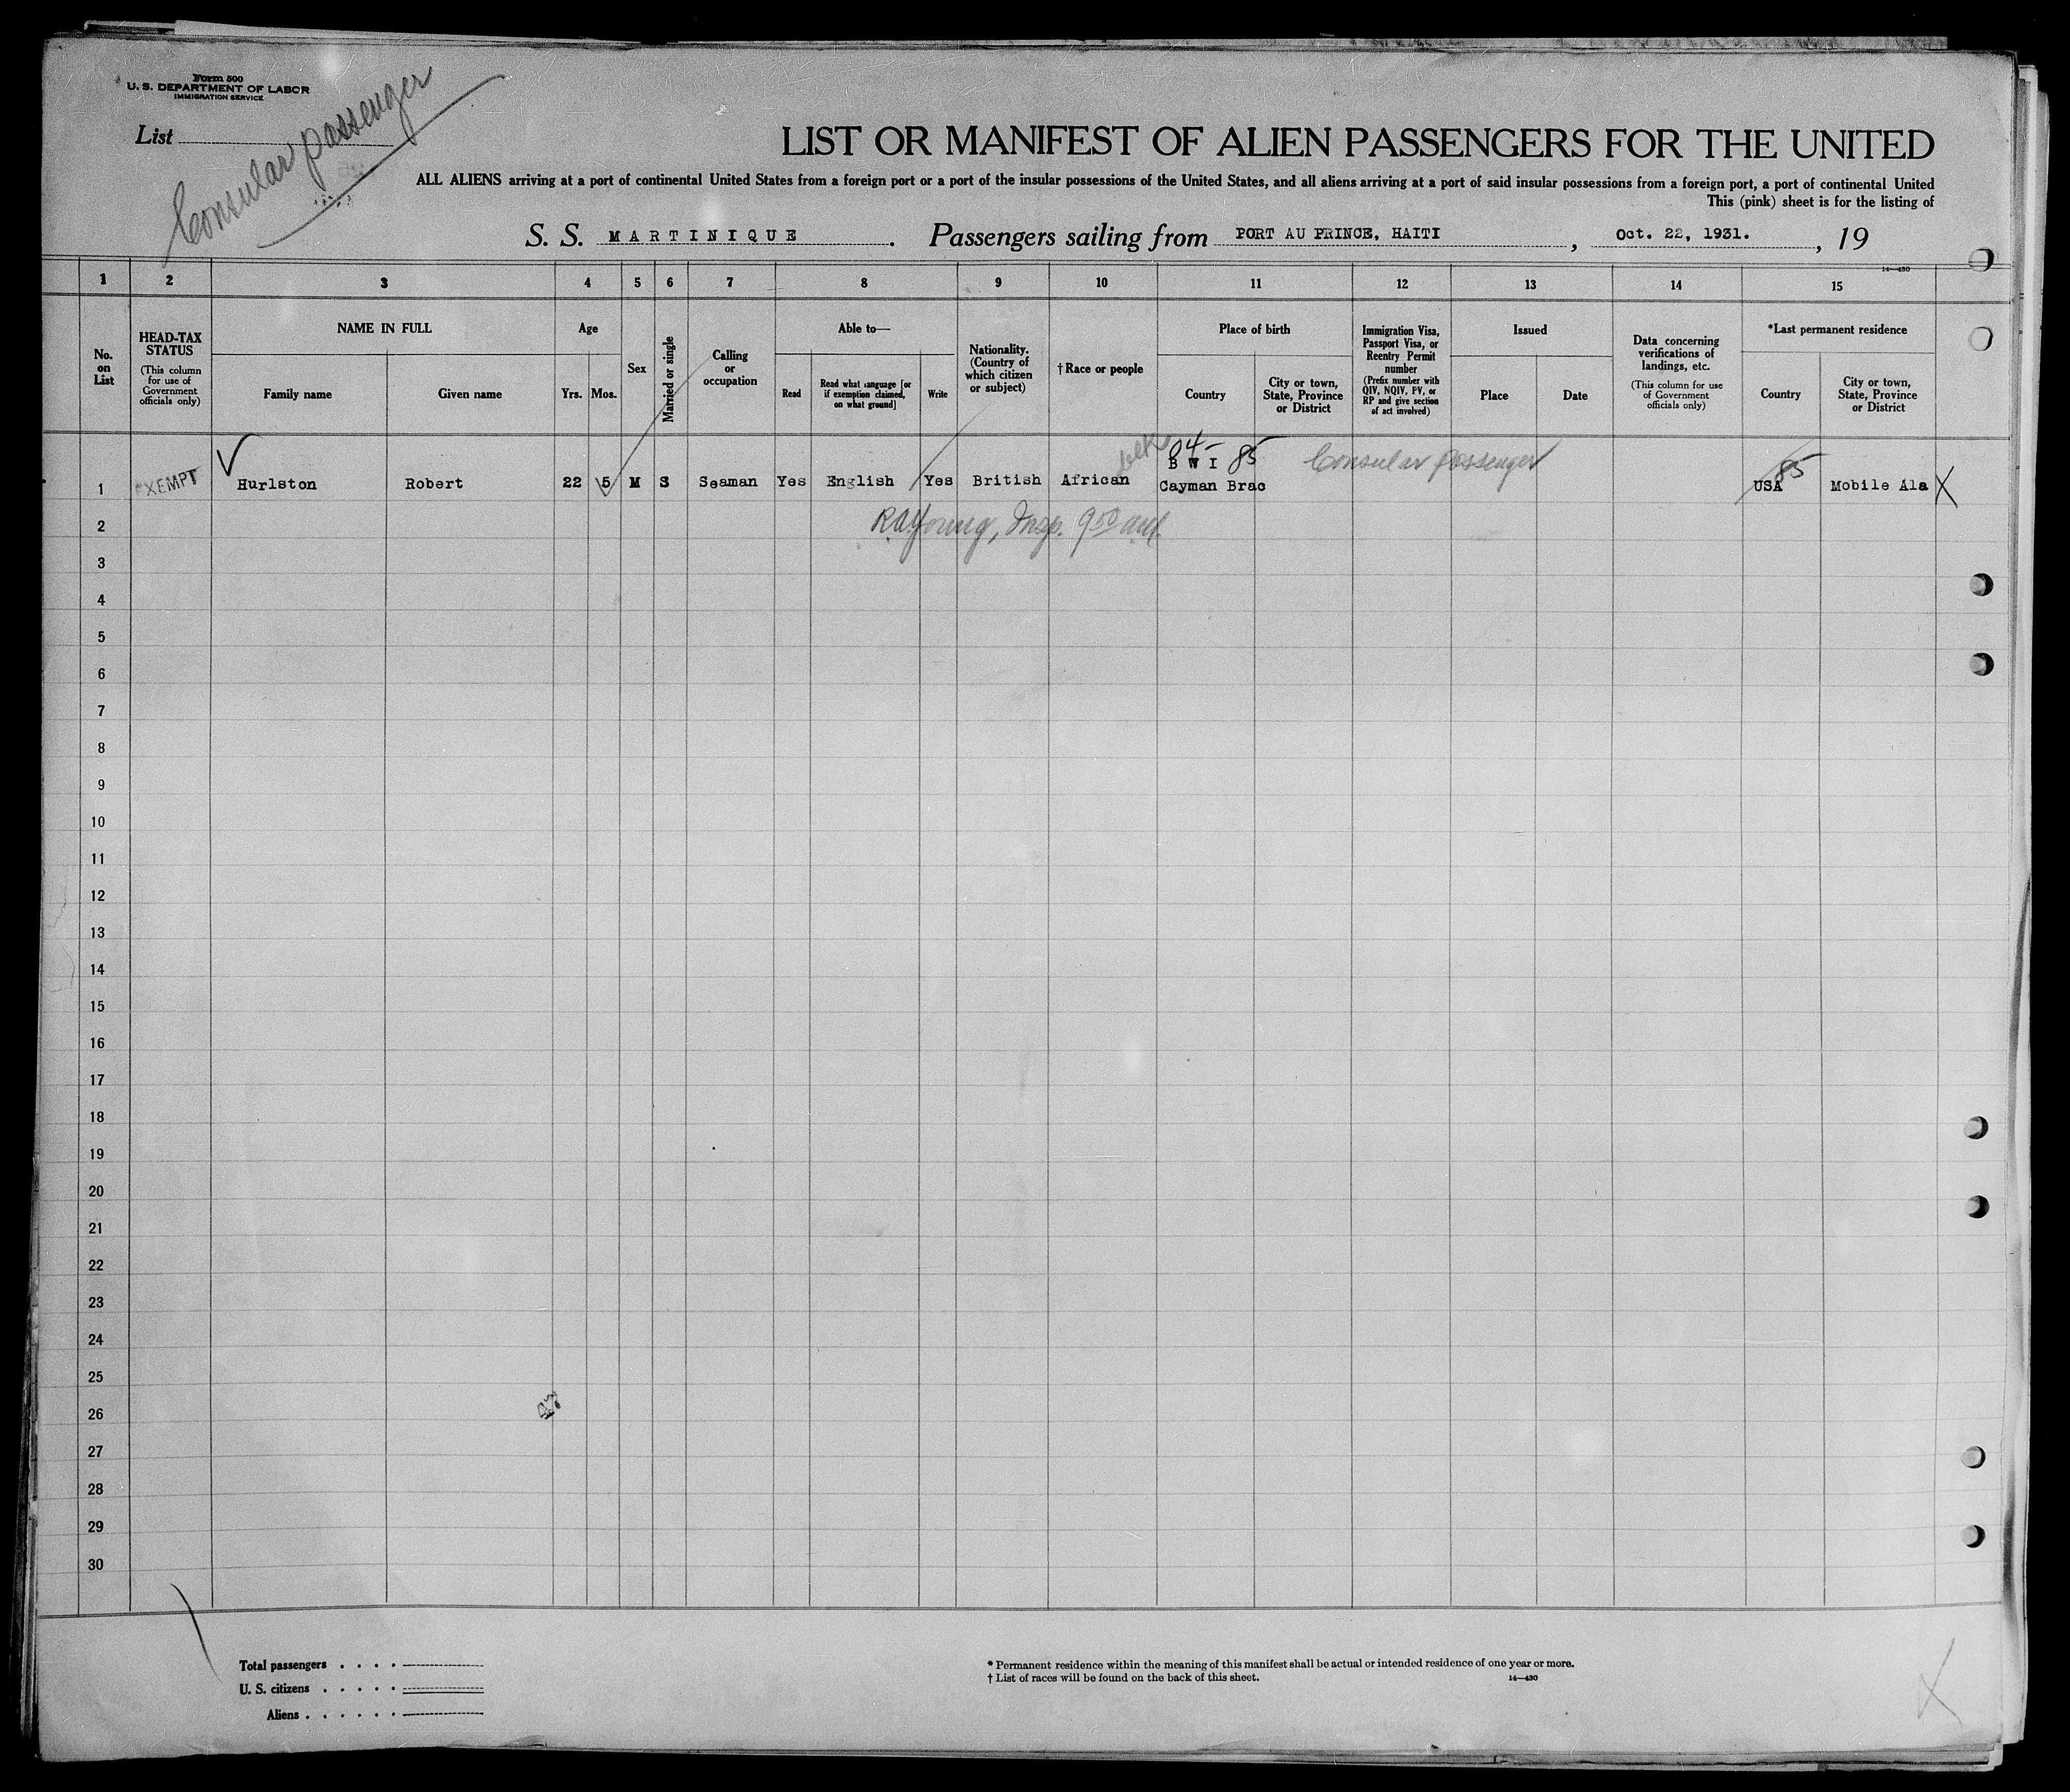 Form 500
U. S. DEPARTMENT OF LABOR
IMMIGRATION SERVICE
List
Consular passenger
LIST OR MANIFEST OF ALIEN PASSENGERS FOR THE UNITED
ALL ALIENS arriving at a port of continental United States from a foreign port or a port of the insular possessions of the United States, and all aliens arriving at a port of said insular possessions from a foreign port, a port of continental United
This (pink) sheet is for the listing of
S. S. MARTINIQUE. Passengers sailing from PORT AU PRINCE, HAITI, Oct. 22, 1931., 19
14—430
1 2 3 4 5 6 7 8 9 10 11 12 13 14 15
No. on List
HEAD-TAX STATUS
(This column for use of Government officials only)
NAME IN FULL
Family name
Given name
Age
Yrs. Mos.
Sex
Married or single
Calling or occupation
Able to—
Read
Read what language [or if exemption claimed, on what ground]
Write
Nationality. (Country of which citizen or subject)
†Race or people
Place of birth
Country
City or town, State, Province or District
Immigration Visa, Passport Visa, or Reentry Permit number
(Prefix number with QIV, NQIV, PV, or RP and give section of act involved)
Issued
Place
Date
Data concerning verifications of landings, etc.
(This column for use of Government officials only)
*Last permanent residence
Country
City or town, State, Province or District
blk 04- 85
B W I Consular passenger 85
1 EXEMPT Hurlston Robert 22 5 M S Seaman Yes English Yes British African Cayman Brac USA Mobile Ala X
2 R A Young, Insp. 9 50 am.
3
4
5
6
7
8
9
10
11
12
13
14
15
16
17
18
19
20
21
22
23
24
25
26
27
28
29
30
Total passengers . . . .
U. S. citizens . . . . .
Aliens . . . . . .
* Permanent residence within the meaning of this manifest shall be actual or intended residence of one year or more.
† List of races will be found on the back of this sheet.
14—430
X